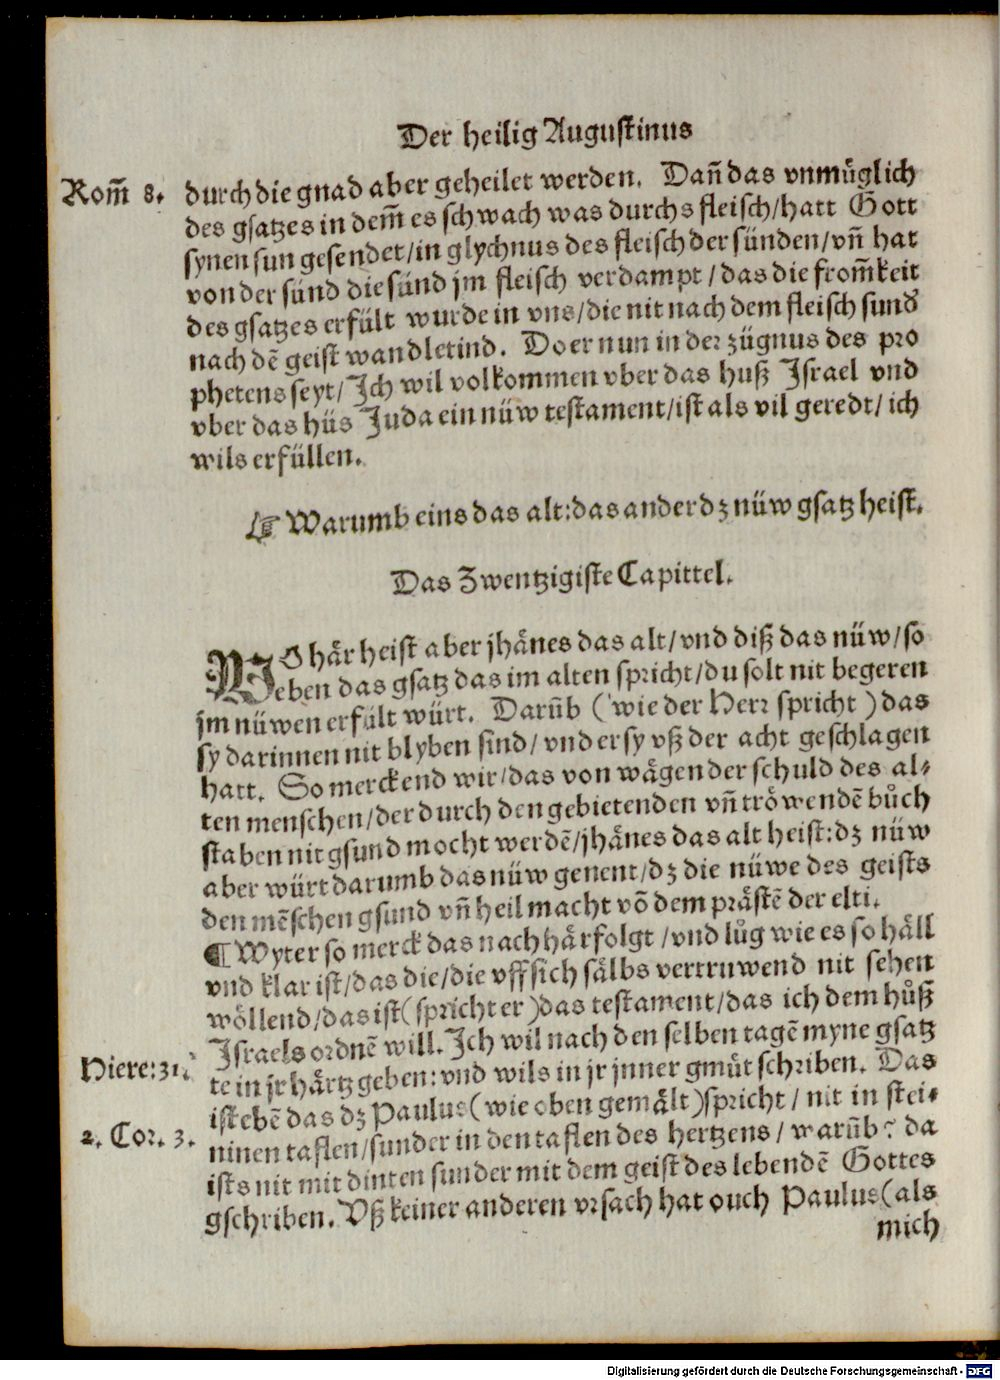 Der heilig Augustinus
Rom̄ 8. durch die gnad aber geheilet werden. Dañ das vnmüglich
des gsatzes in dem̄ es schwach was durchs fleisch/hatt Gott
synen sun gesendet/in glychnus des fleisch der sünden/vñ hat
von der sünd die sünd jm fleisch verdampt/das die from̄keit
des gsatzes erfült wurde in vns/die nit nach dem fleisch sund
nach dē geist wandletind. Do er nun in der zügnus des pro
phetens seyt/Ich wil volkommen vber das huß Israel vnd
vber das hüs Juda ein nüw testament/ist als vil geredt/ich
wils erfüllen.
☞ Warumb eins das alt:das ander dz nüw gsatz heist.
Das Zwentzigiste Capittel.
WO här heist aber jhänes das alt/vnd diß das nüw/so
jeben das gsatz das im alten spricht/du solt nit begeren
jm nüwen erfült würt. Darūb (wie der Herr spricht) das
sy darinnen nit blyben sind/vnd er sy vß der acht geschlagen
hatt. So merckend wir/das von wägen der schuld des al-
ten menschen/der durch den gebietenden vñ tröwendē bůch
staben nit gsund mocht werdē/jhänes das alt heist:dz nüw
aber würt darumb das nüw genent/dz die nüwe des geists
den mēschen gsund vñ heil macht vō dem prästē der elti.
¶ Wyter so merck das nach här folgt/vnd lůg wie es so häll
vnd klar ist/das die/die vff sich sälbs vertruwend nit sehen
wöllend/das ist(spricht er)das testament/das ich dem hůß
Israels ordnē will. Ich wil nach den selben tagē myne gsatz
Hiere:31. te in jr härtz geben:vnd wils in jr jnner gmüt schriben. Das
ist ebē das dz Paulus(wie oben gemält)spricht/nit in stei-
2. Cor. 3. ninen taflen/sunder in den taflen des hertzens/warūb? da
ists nit mit dinten sunder mit dem geist des lebendē Gottes
gschriben. Vß keiner anderen vrsach hat ouch Paulus(als
mich
Digitalisierung gefördert durch die Deutsche Forschungsgemeinschaft - DFG